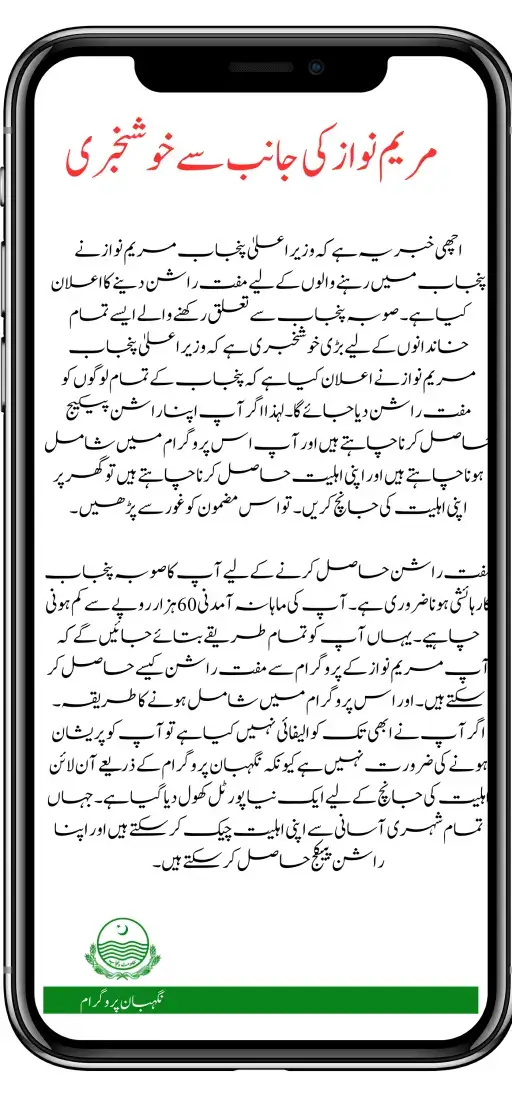 مریم نواز کی جانب سے خوشخبری
اچھی خبر یہ ہے کہ وزیر اعلیٰ پنجاب مریم نواز نے
پنجاب میں رہنے والوں کے لیے مفت راشن دینے کا اعلان
کیا ہے۔ صوبہ پنجاب سے تعلق رکھنے والے ایسے تمام
خاندانوں کے لیے بڑی خوشخبری ہے کہ وزیر اعلیٰ پنجاب
مریم نواز نے اعلان کیا ہے کہ پنجاب کے تمام لوگوں کو
مفت راشن دیا جائے گا۔ لہذا اگر آپ اپنا راشن پیکیج
حاصل کرنا چاہتے ہیں اور آپ اس پروگرام میں شامل
ہونا چاہتے ہیں اور اپنی اہلیت حاصل کرنا چاہتے ہیں تو گھر پر
اپنی اہلیت کی جانچ کریں۔ تو اس مضمون کو غور سے پڑھیں۔
مفت راشن حاصل کرنے کے لیے آپ کا صوبہ پنجاب
کا رہائشی ہونا ضروری ہے۔ آپ کی ماہانہ آمدنی 60 ہزار روپے سے کم ہونی
چاہیے۔ یہاں آپ کو تمام طریقے بتائے جائیں گے کہ
آپ مریم نواز کے پروگرام سے مفت راشن کیسے حاصل کر
سکتے ہیں۔ اور اس پروگرام میں شامل ہونے کا طریقہ۔
اگر آپ نے ابھی تک کوالیفائی نہیں کیا ہے تو آپ کو پریشان
ہونے کی ضرورت نہیں ہے کیونکہ نگہبان پروگرام کے ذریعے آن لائن
اہلیت کی جانچ کے لیے ایک نیا پورٹل کھول دیا گیا ہے۔ جہاں
تمام شہری آسانی سے اپنی اہلیت چیک کر سکتے ہیں اور اپنا
راشن پیکج حاصل کر سکتے ہیں۔
نگہبان پروگرام